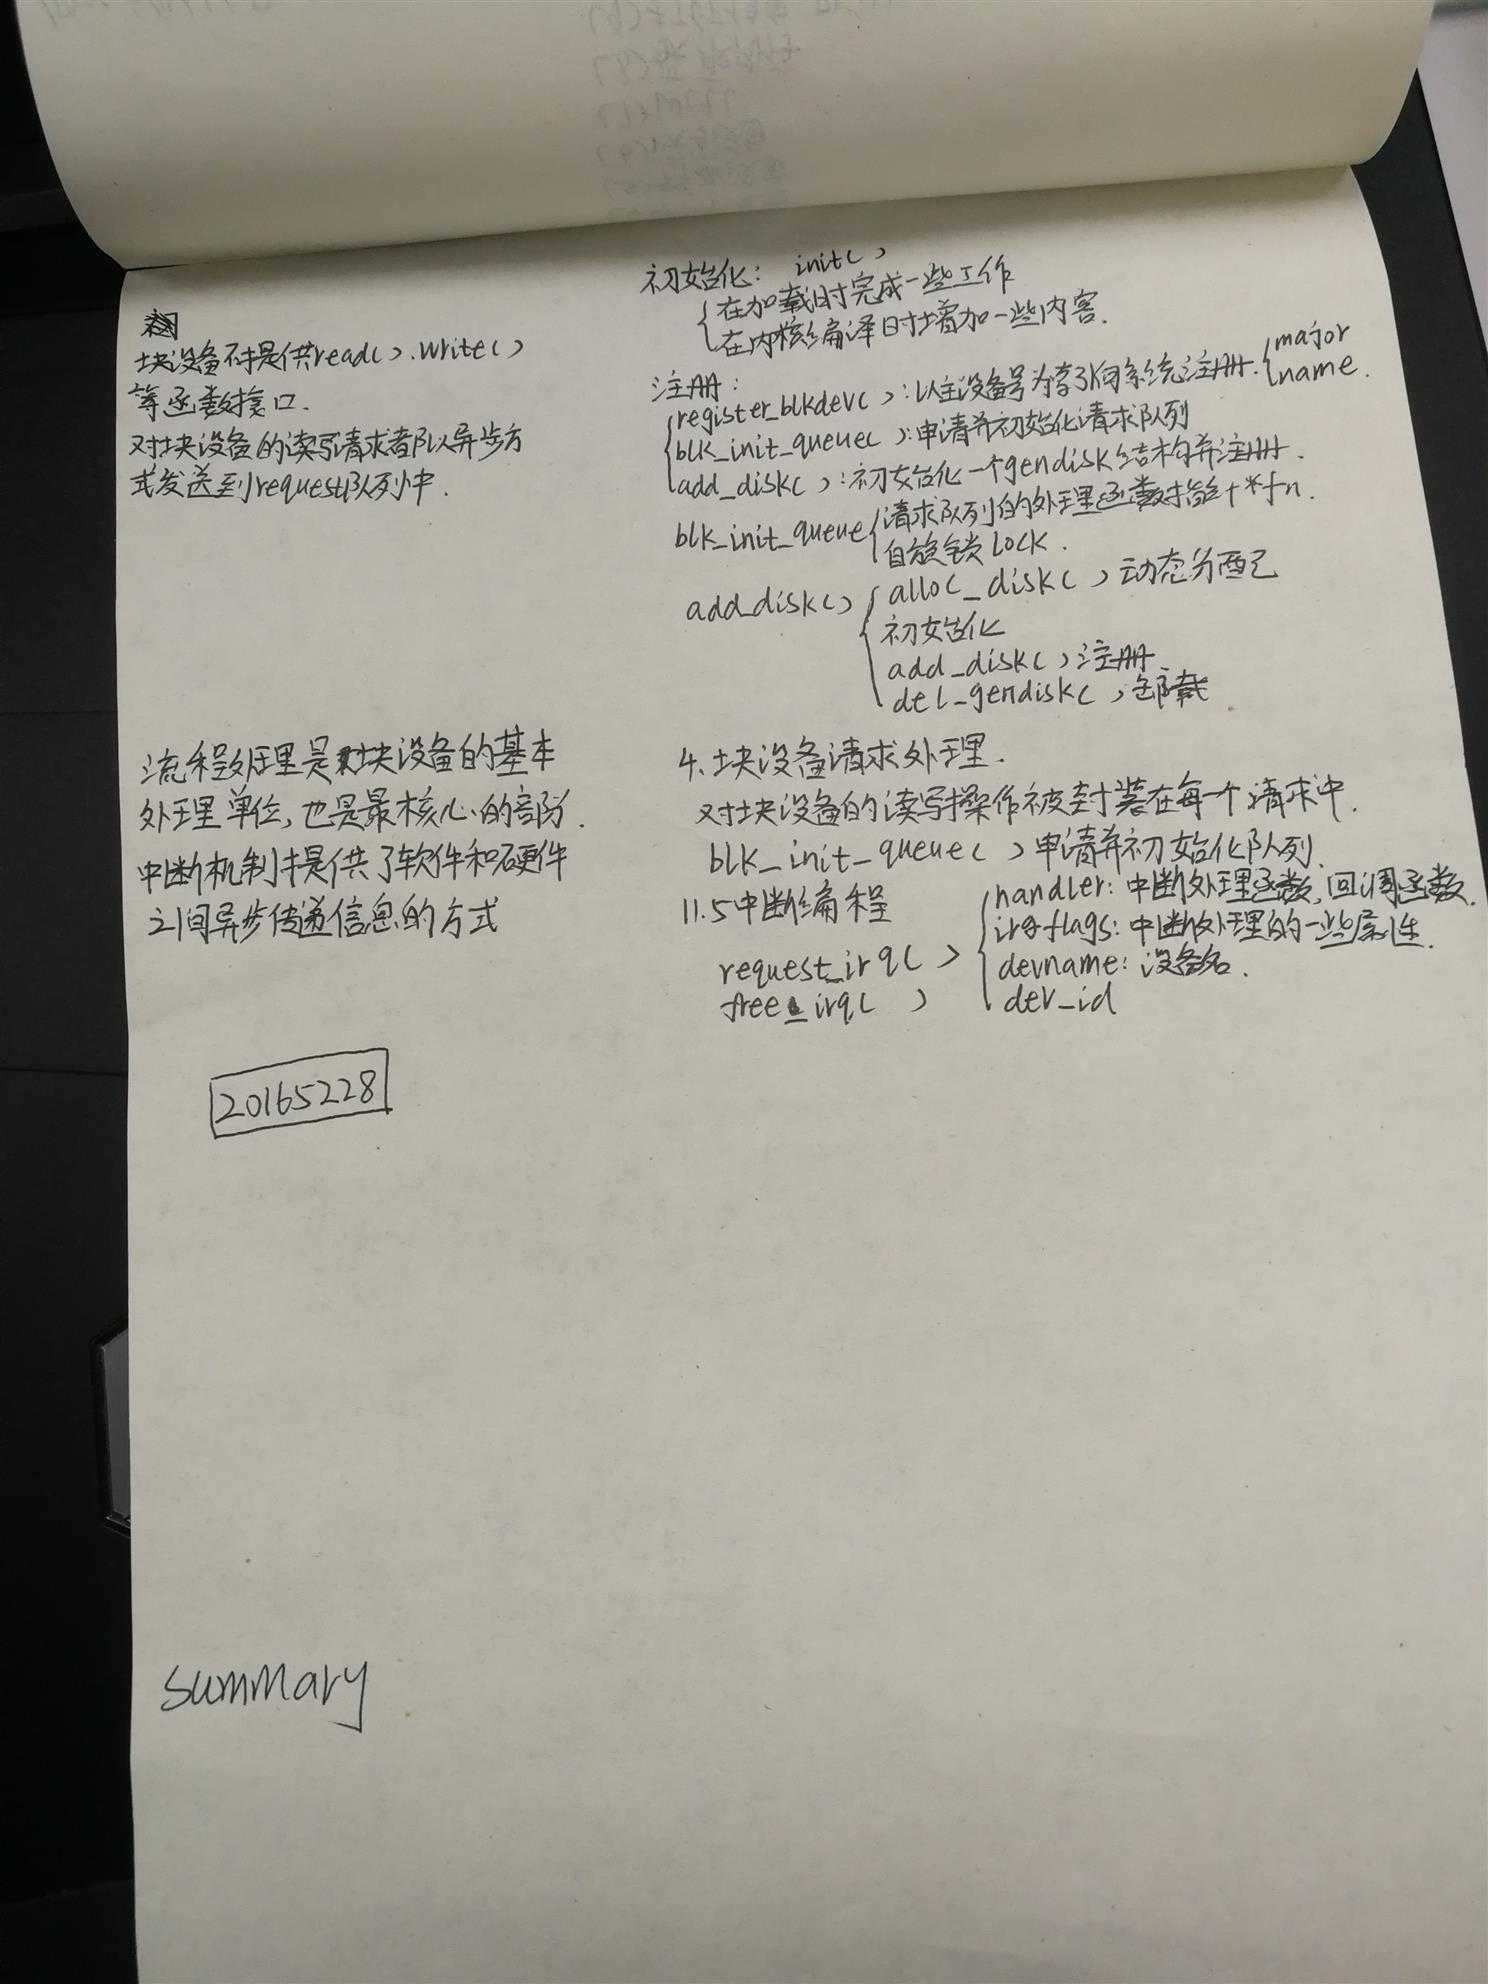 块设备不提供read()、write()
等函数接口.
对块设备的读写请求都以异步方
式发送到request队列中.
初始化: init()
在加载时完成一些工作
在内核编译时增加一些内容.
注册:
register_blkdev(): 以主设备号为索引向系统注册. major
name.
blk_init_queue(): 申请并初始化请求队列
add_disk(): 初始化一个gendisk结构并注册.
blk_init_queue 请求队列的处理函数指针*fn.
自旋锁lock.
add_disk() alloc_disk() 动态分配
初始化
add_disk() 注册
del_gendisk() 卸载
流程处理是块设备的基本
处理单位, 也是最核心的部分.
中断机制提供了软件和硬件
之间异步传递信息的方式
4. 块设备请求处理.
对块设备的读写操作被封装在每一个请求中.
blk_init_queue() 申请并初始化队列.
11.5 中断编程
handler: 中断处理函数, 回调函数.
irqflags: 中断处理的一些属性.
request_irq() devname: 设备名.
free_irq() dev_id
20165228
summary